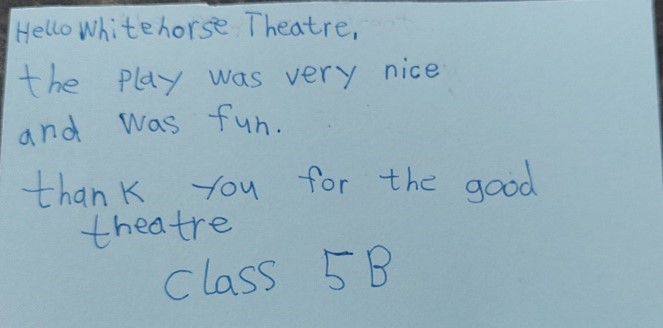 Hello Whitehorse Theatre,
the play was very nice
and was fun.
thank you for the good
theatre
class 5B